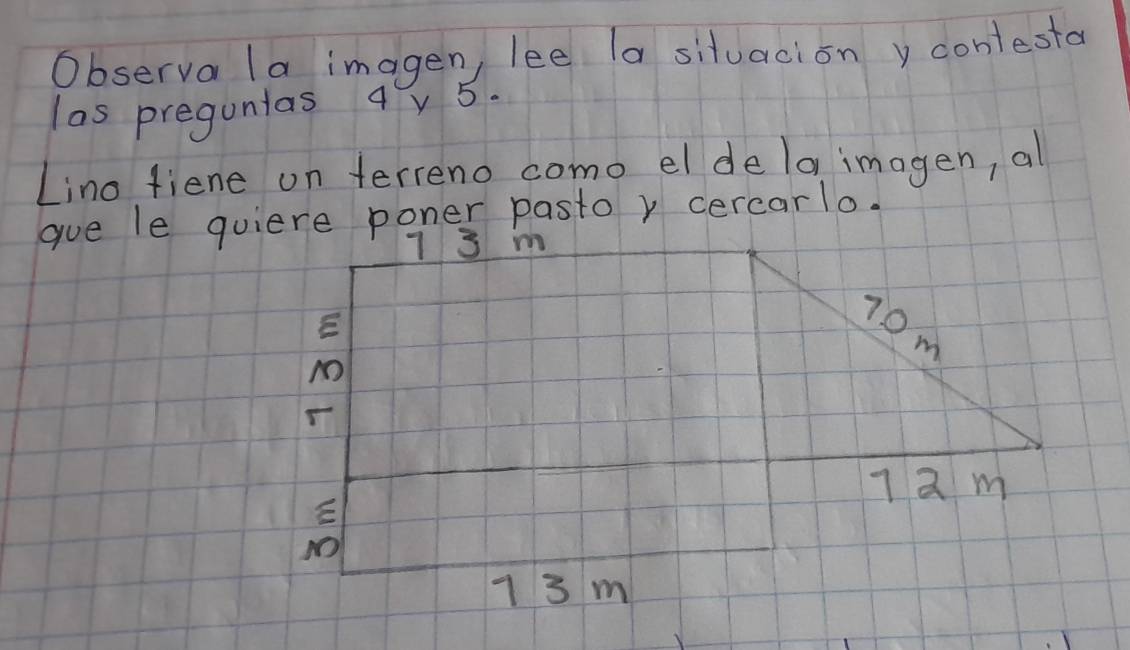 Observa la imagen, lee la situación y contesta
las preguntas 4 y 5.
Lino tiene un terreno como el de la imagen, al
que le quiere poner pasto y cercarlo.
13 m
13 m
10 m
12 m
3 m
13 m